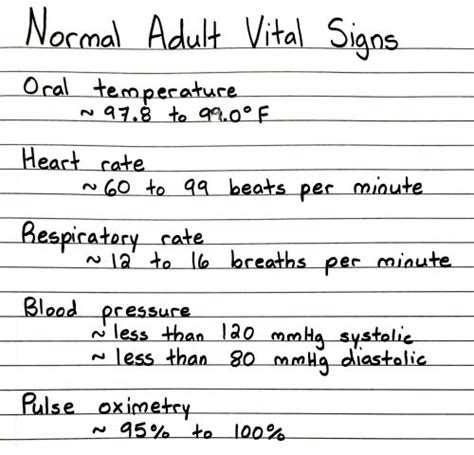 Normal Adult Vital Signs
Oral temperature
~ 97.8 to 99.0°F
Heart rate
~60 to 99 beats per minute
Respiratory rate
~ 12 to 16 breaths per minute
Blood pressure
~ less than 120 mmHg systolic
~ less than 80 mmHg diastolic
Pulse oximetry
~ 95% to 100%